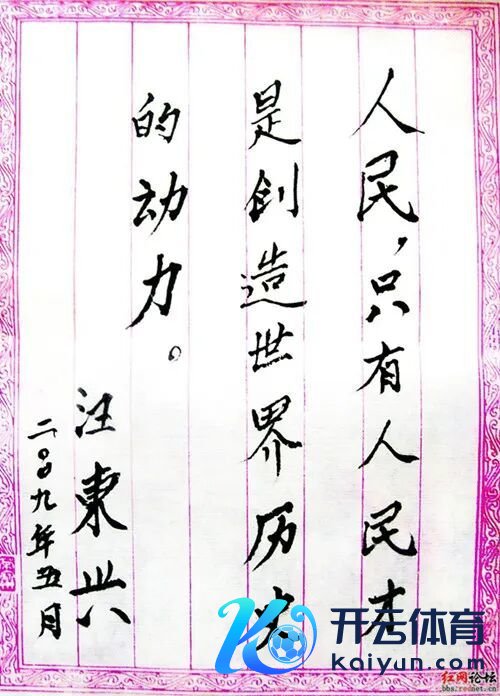 人民，只有人民才
是创造世界历史
的动力。
汪东兴
二〇〇九年五月
开云体育
kaiyun.com
红网论坛
bbs.rednet.cn